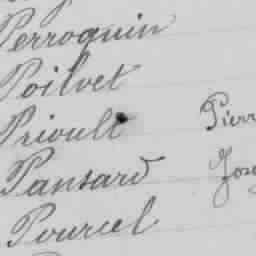 Perroquin
Poilvet
Prioult Pierr
Pansard Jos
Pourcel